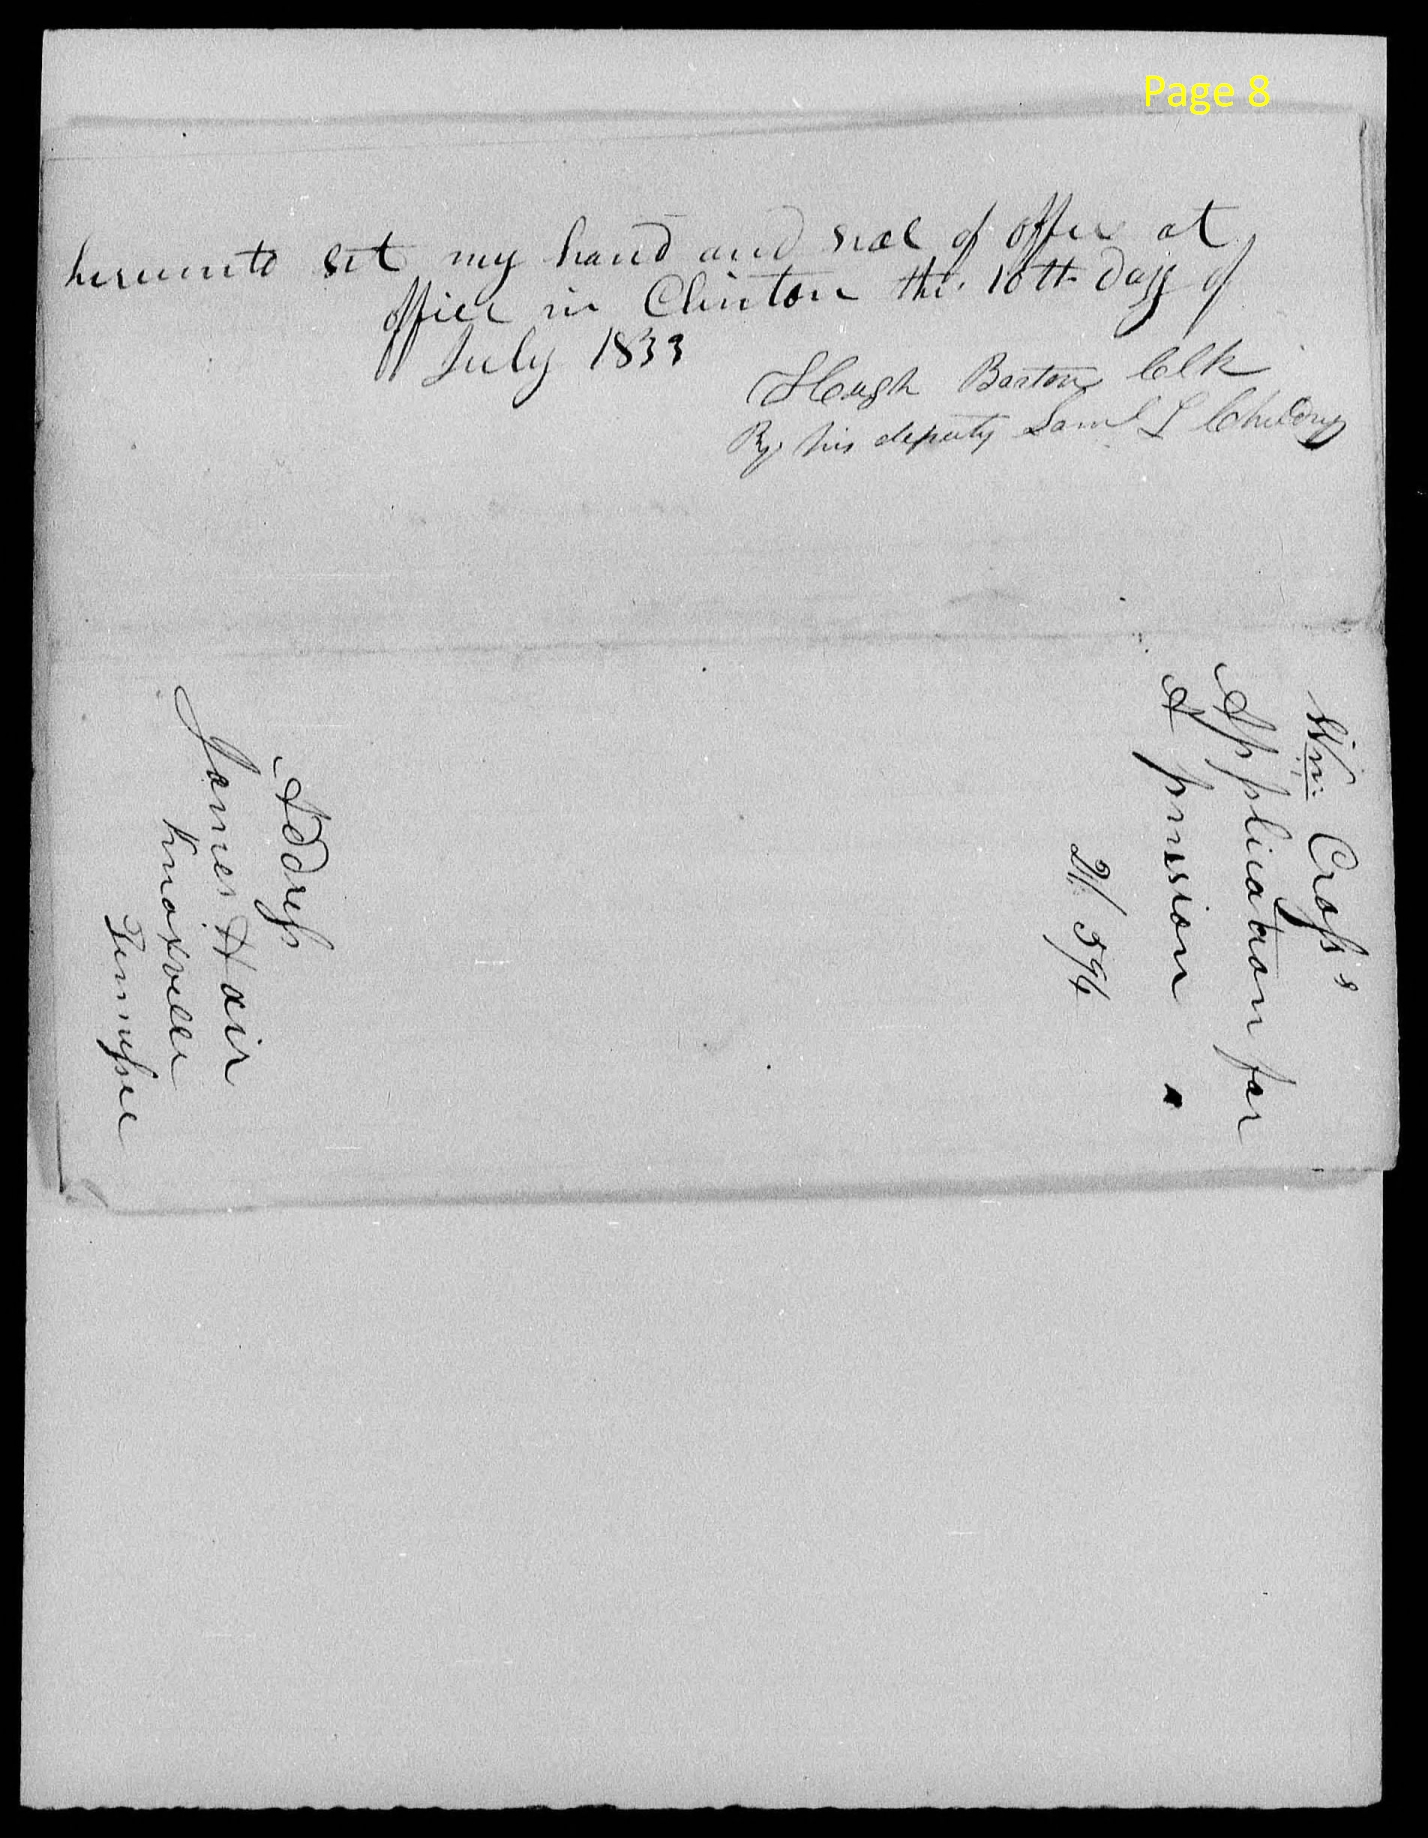 Page 8
hereunto set my hand and seal of office at
office in Clinton the 10th day of
July 1833
Hugh Barton Clk
By his deputy Saml L Childry
Wm: Cross's
Application for
A pension
21 594
Address
James Hair
Knoxville
Tennessee